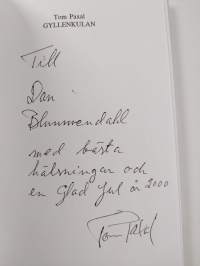 Tom Paxal
GYLLENKULAN
Till
Dan
Blummendahl
med bästa
hälsningar och
en Glad Jul år 2000
Tom Paxal